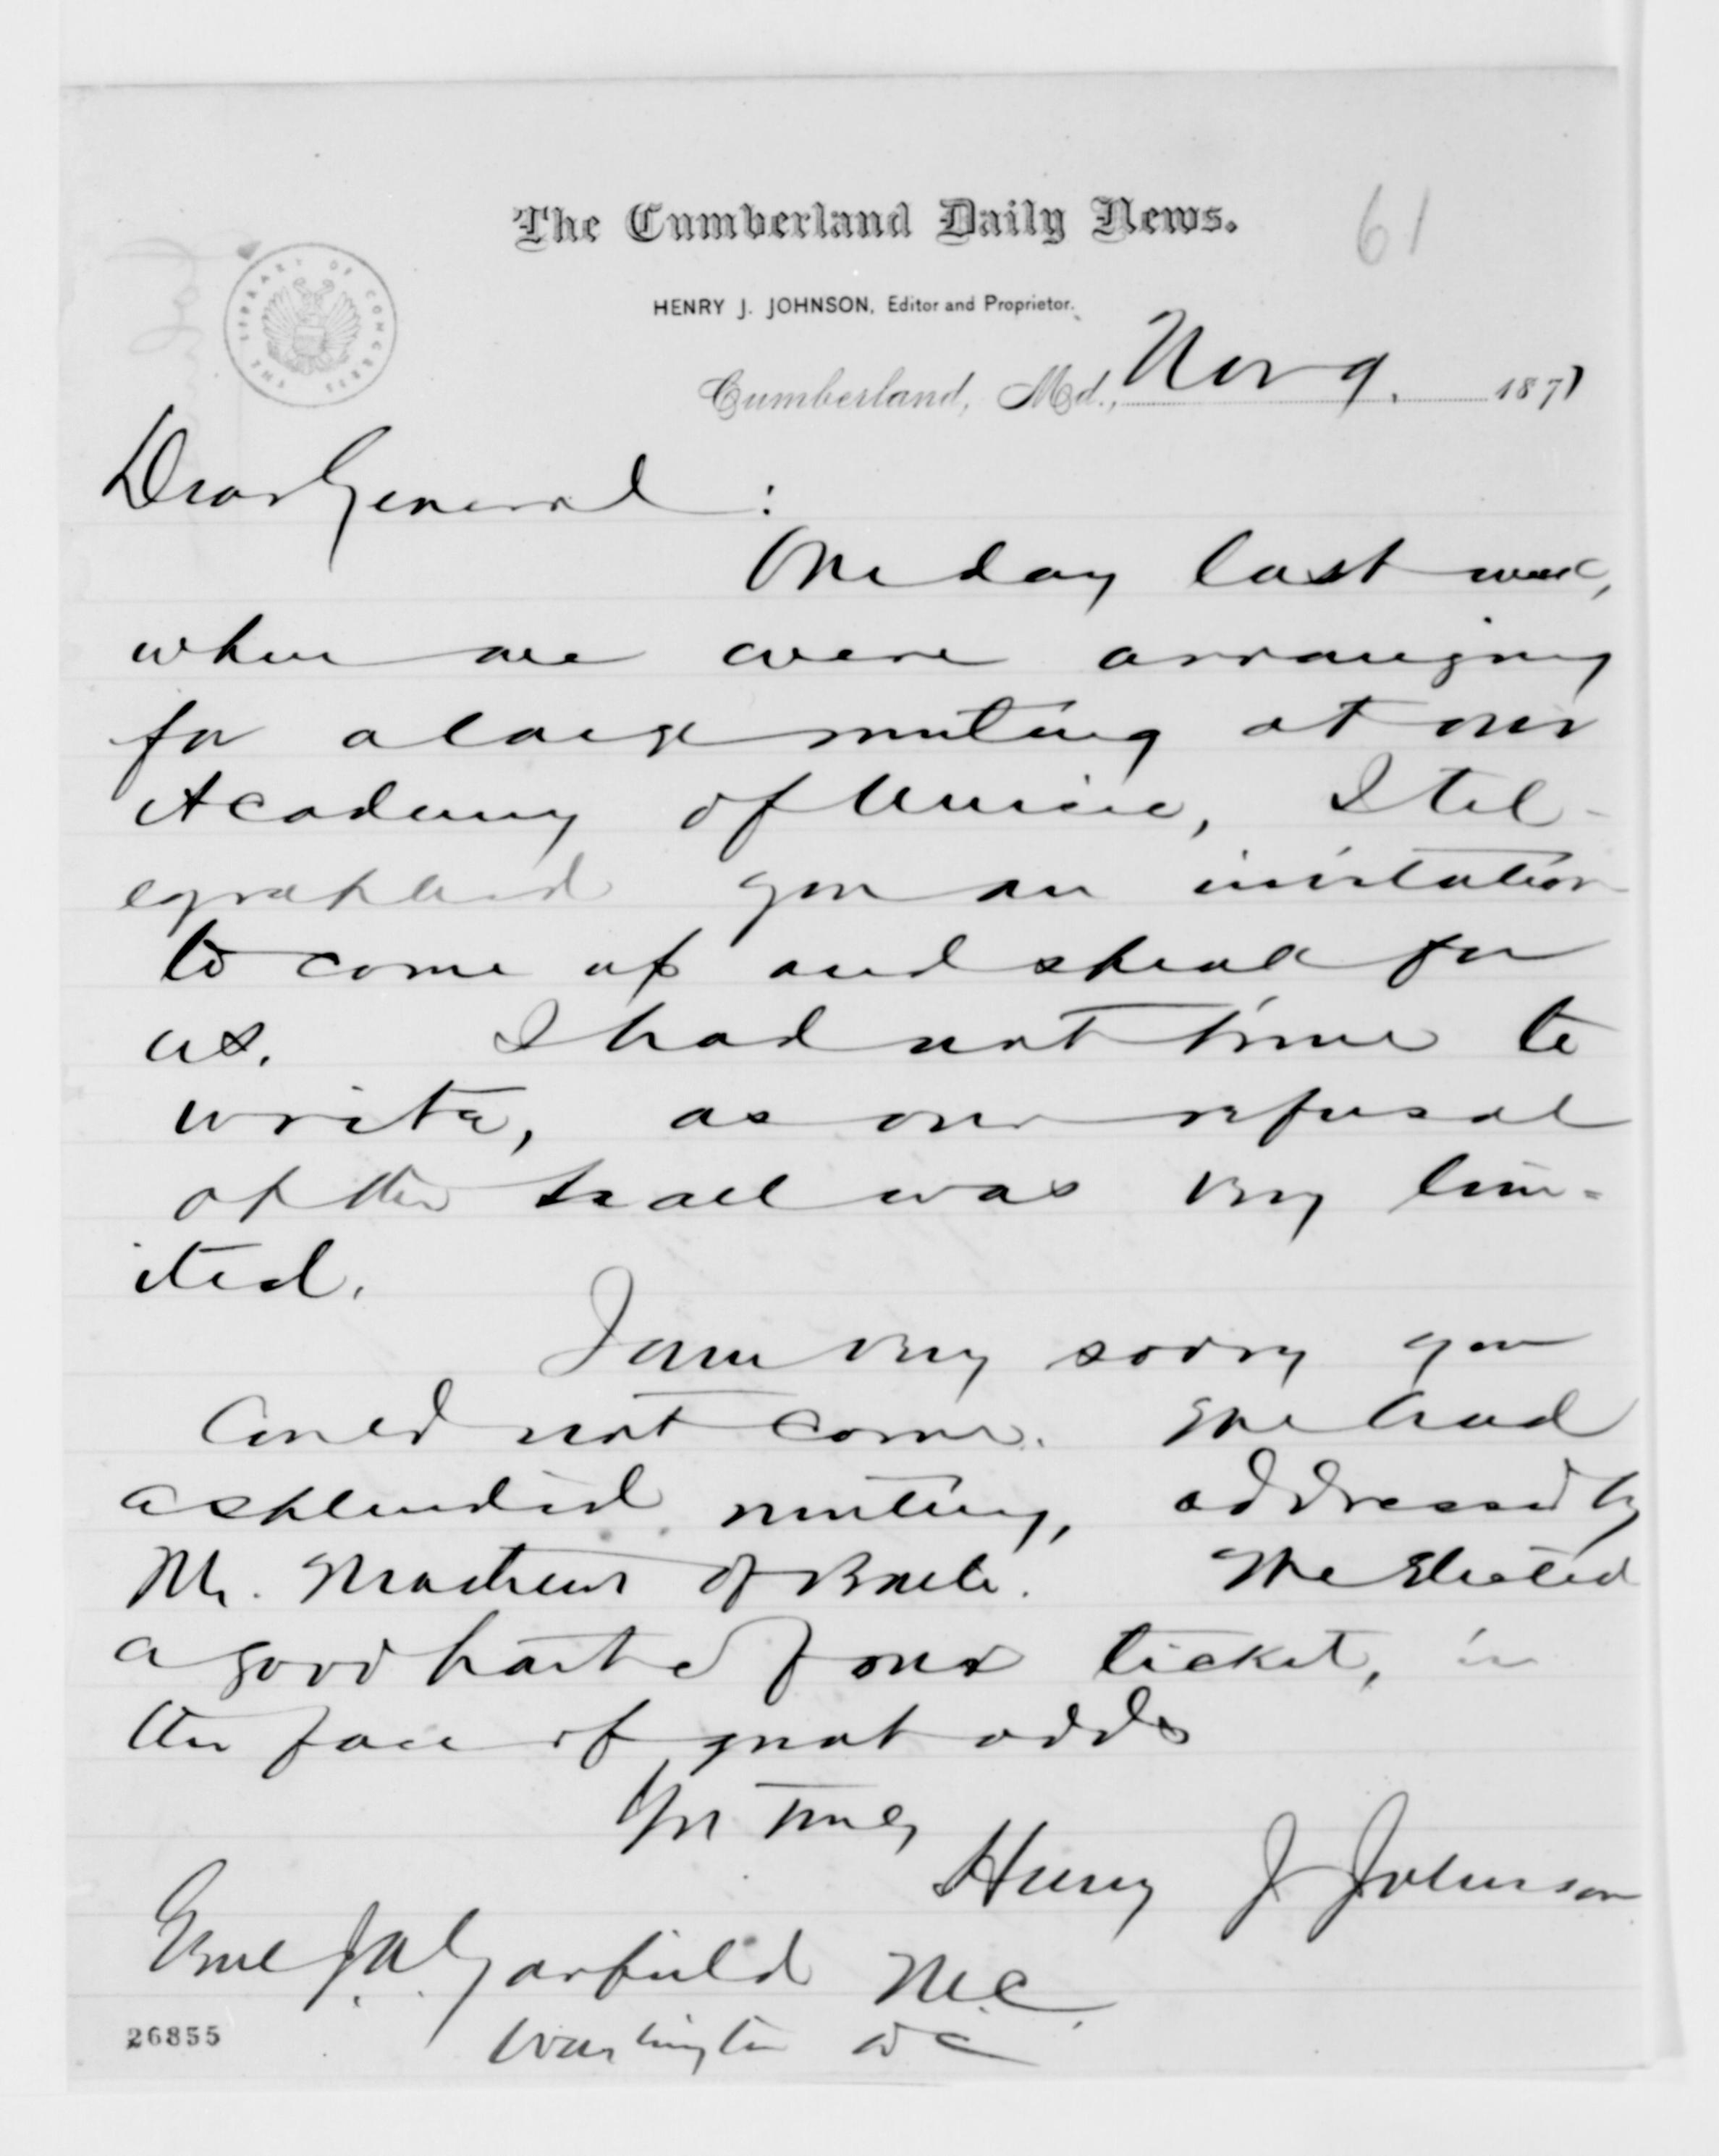 The Cumberland Daily News.
61
HENRY J. JOHNSON, Editor and Proprietor.
THE LIBRARY OF CONGRESS
Cumberland, Md., Nov 9. 1877
Dear General :
One day last week,
when we were arranging
for a large meeting at our
Academy of Music, I tel-
egraphed you an invitation
to come up and speak for
us. I had not time to
write, as our refusal
of the hall was very lim-
ited.
I am very sorry you
could not come. We had
a splendid meeting, addressed by
Mr. Mathews of Balto. We elected
a good part of our ticket, in
the face of great odds
Yrs Truly
Henry J Johnson
Genl J. A. Garfield M.C.
Washington DC
26855